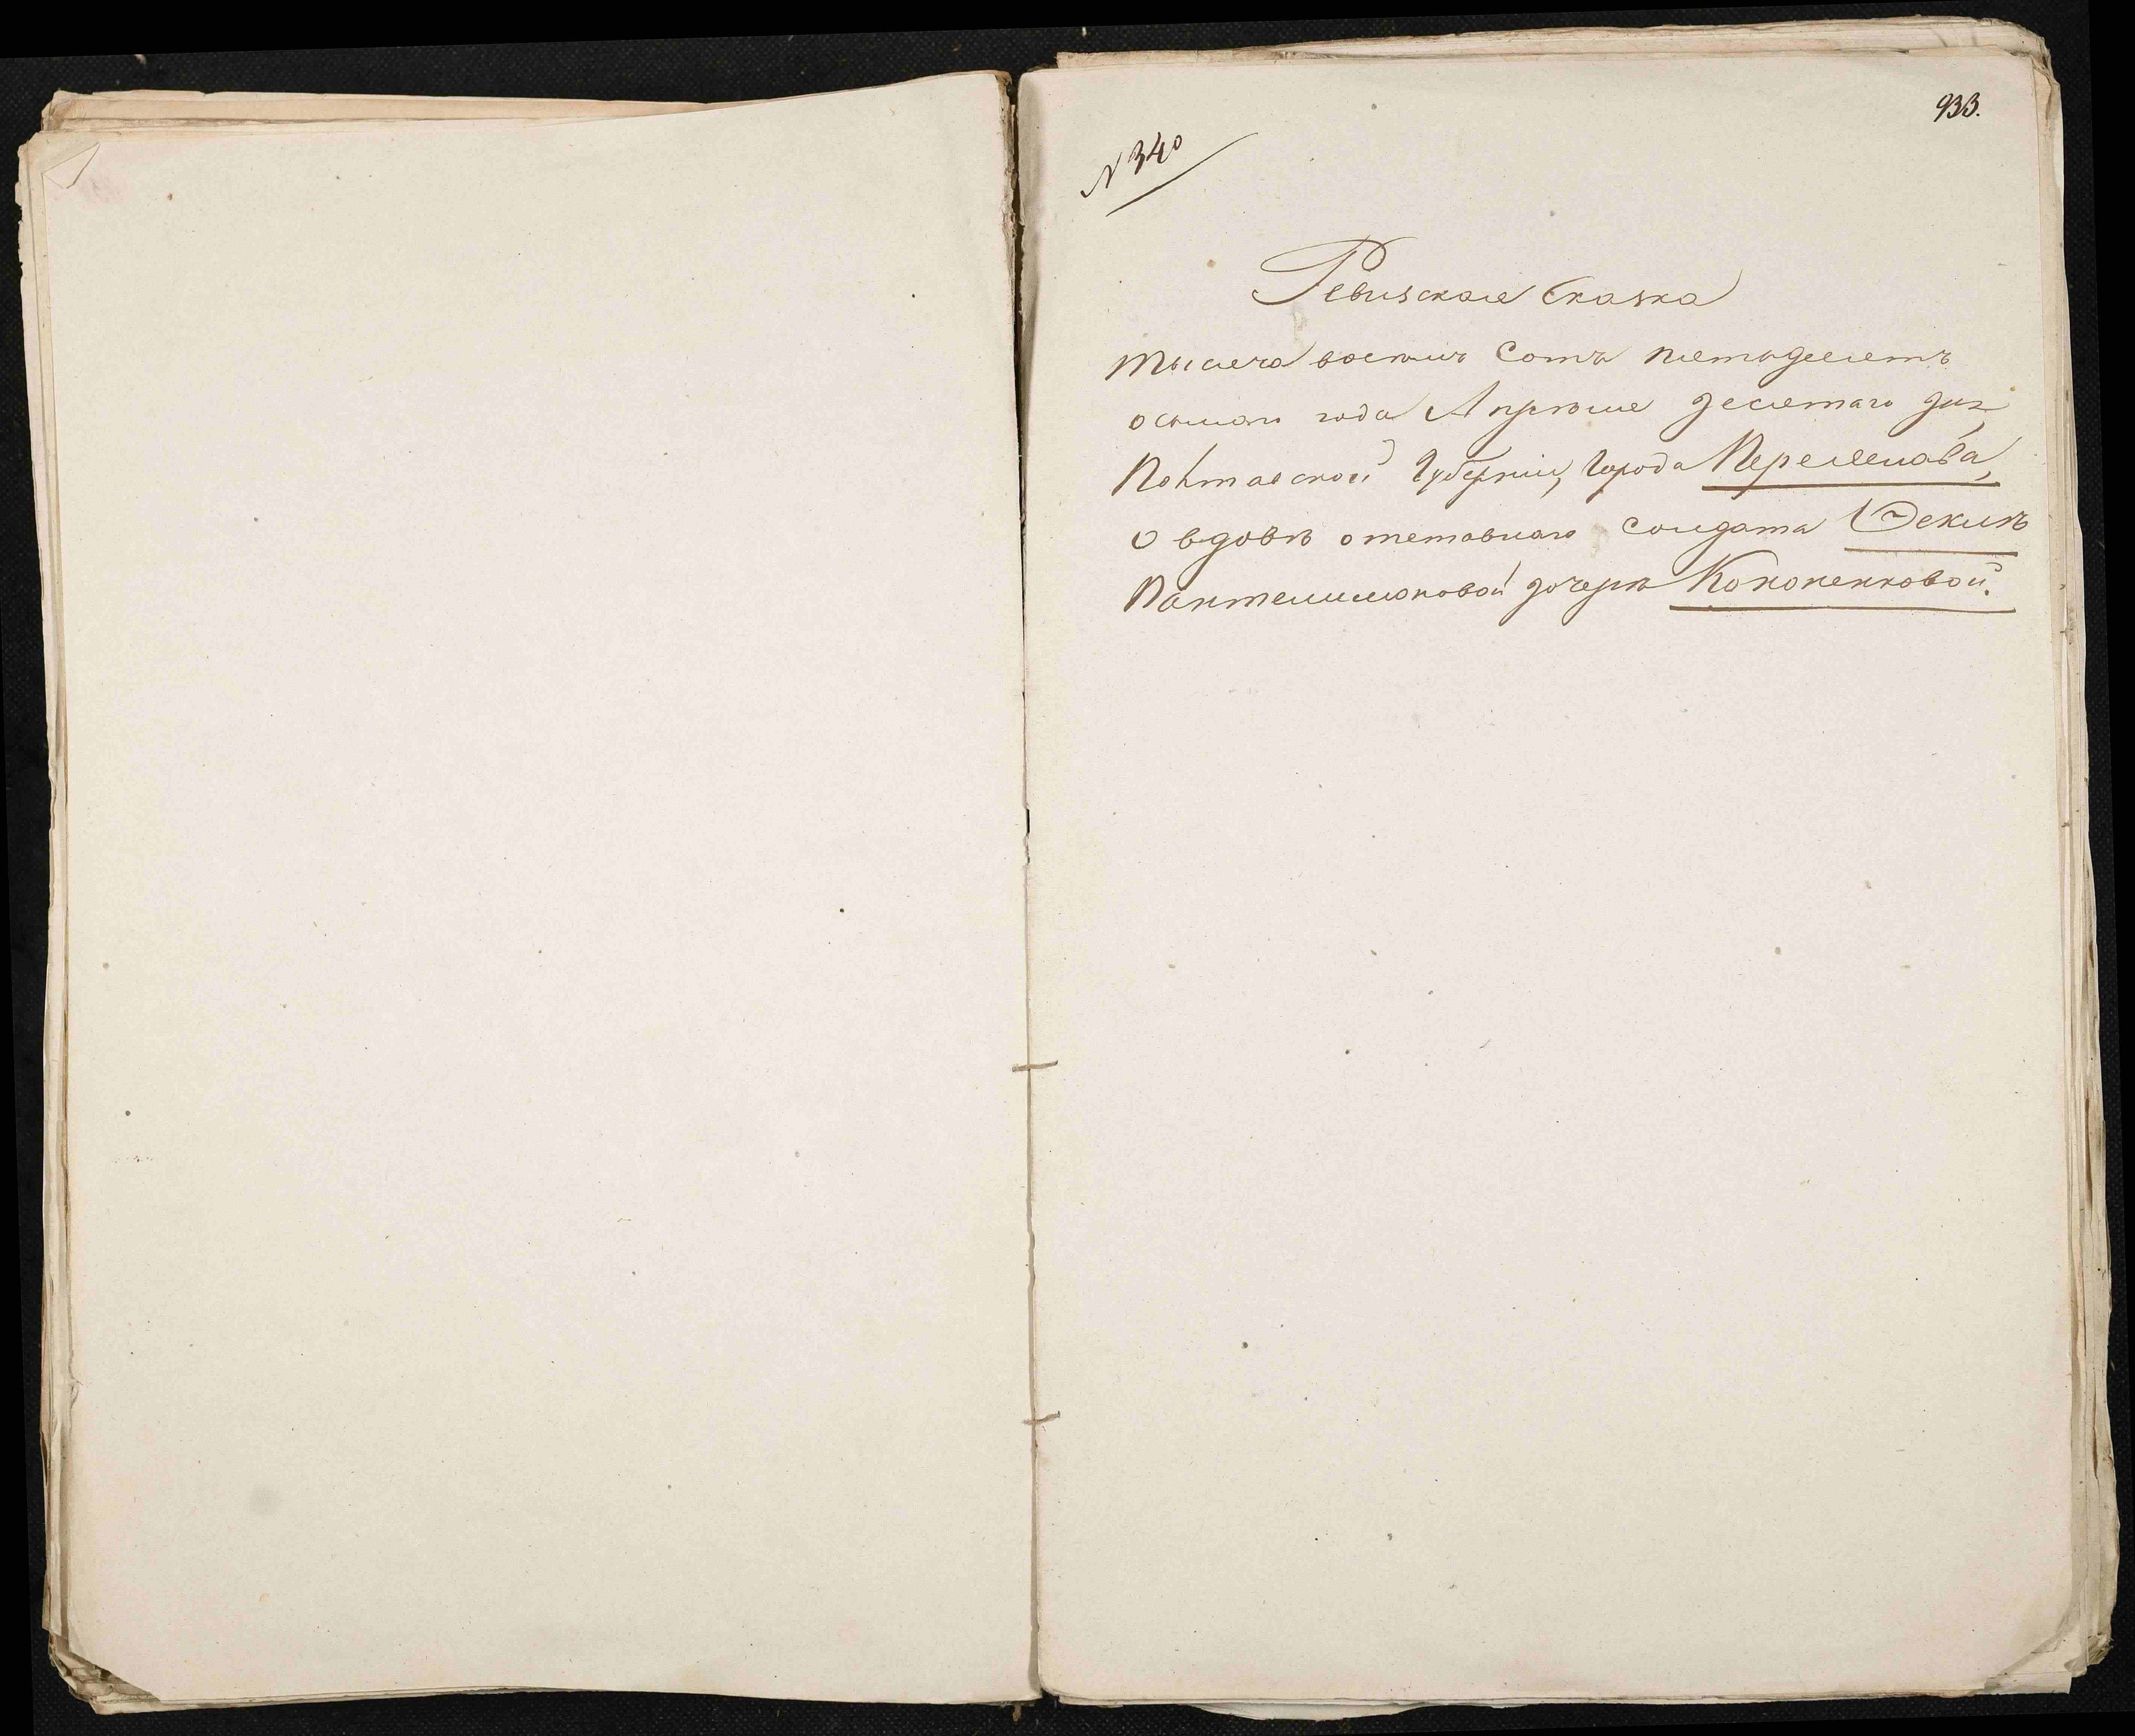 933.
№ 340
Ревизская Сказка
тысеча восемь сотъ пятьдесятъ
осьмаго года Апреля десятаго дня
Полтавской Губерніи, Города Переяслава,
О вдовѣ отставнаго солдата Феклѣ
Пантелимоновой дочерѣ Кононенковой.